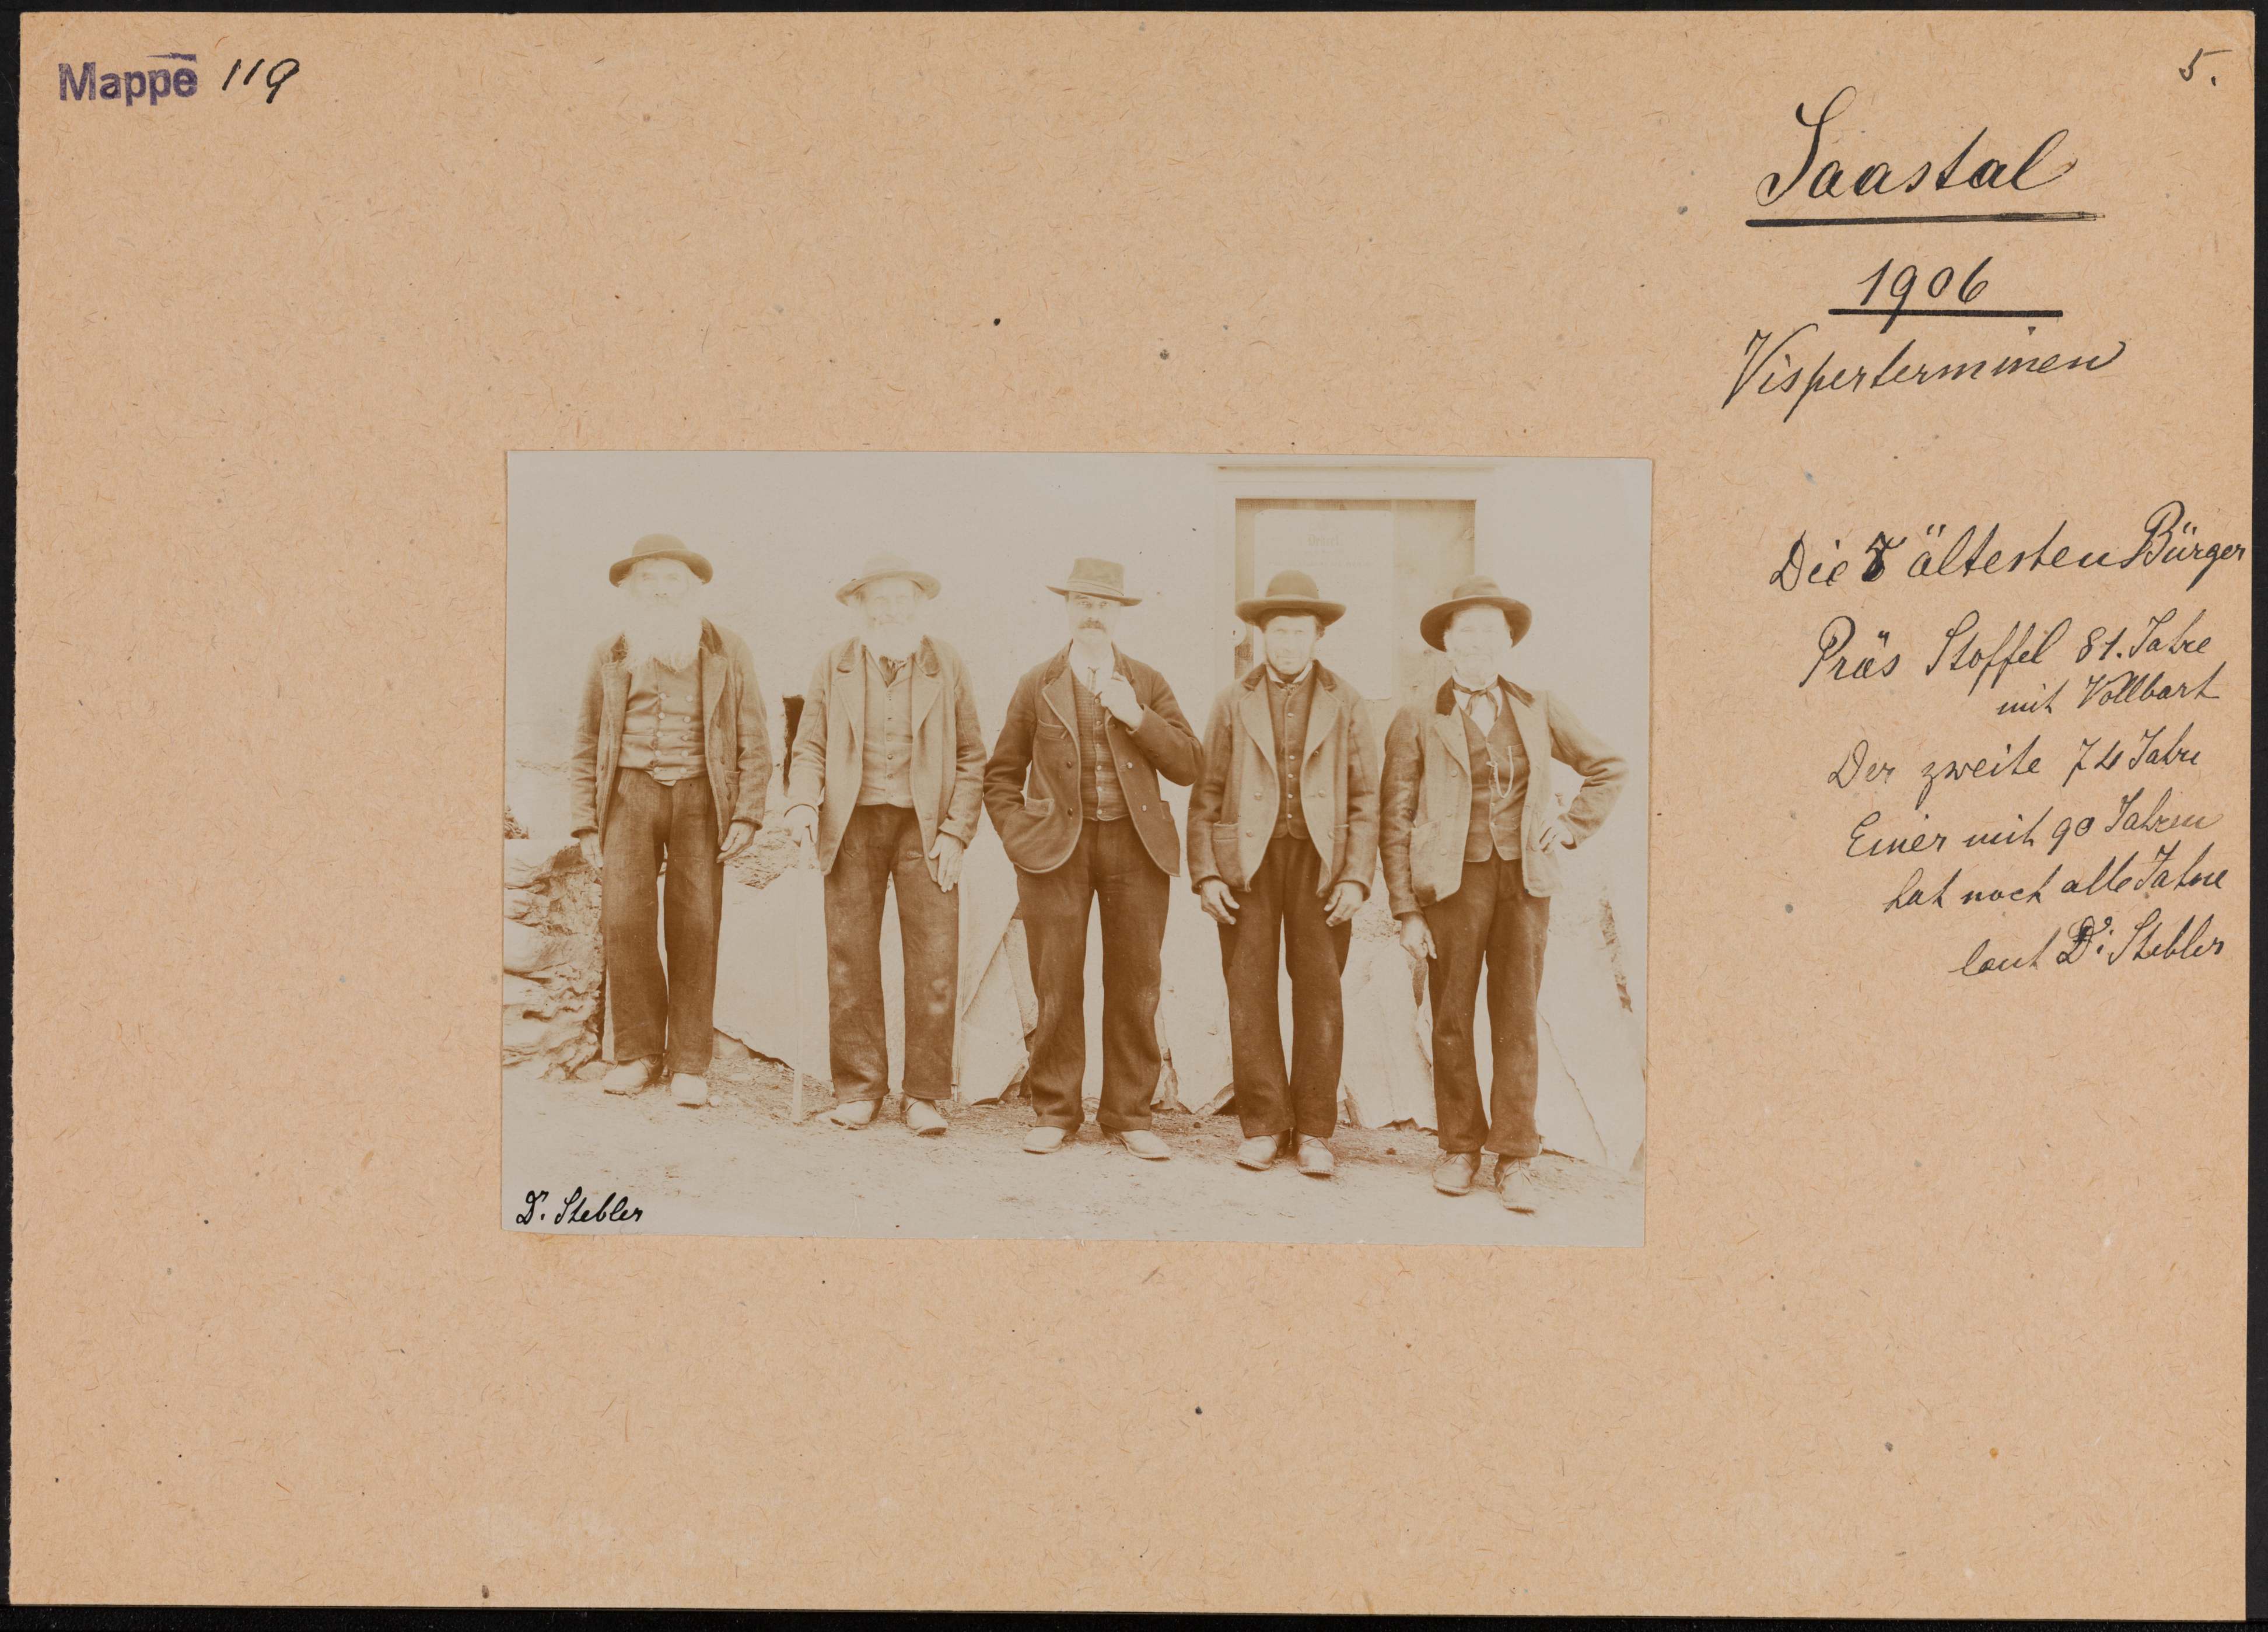 Mappe 119
5.
Saastal
1906
Visperterminen
Die ältesten Bürger
Präs Stoffel 81. Jahre
mit Vollbart
Der zweite 74 Jahre
Einer mit 90 Jahren
hat noch alle Zahne
laut Dr. Stebler
Dr. Stebler